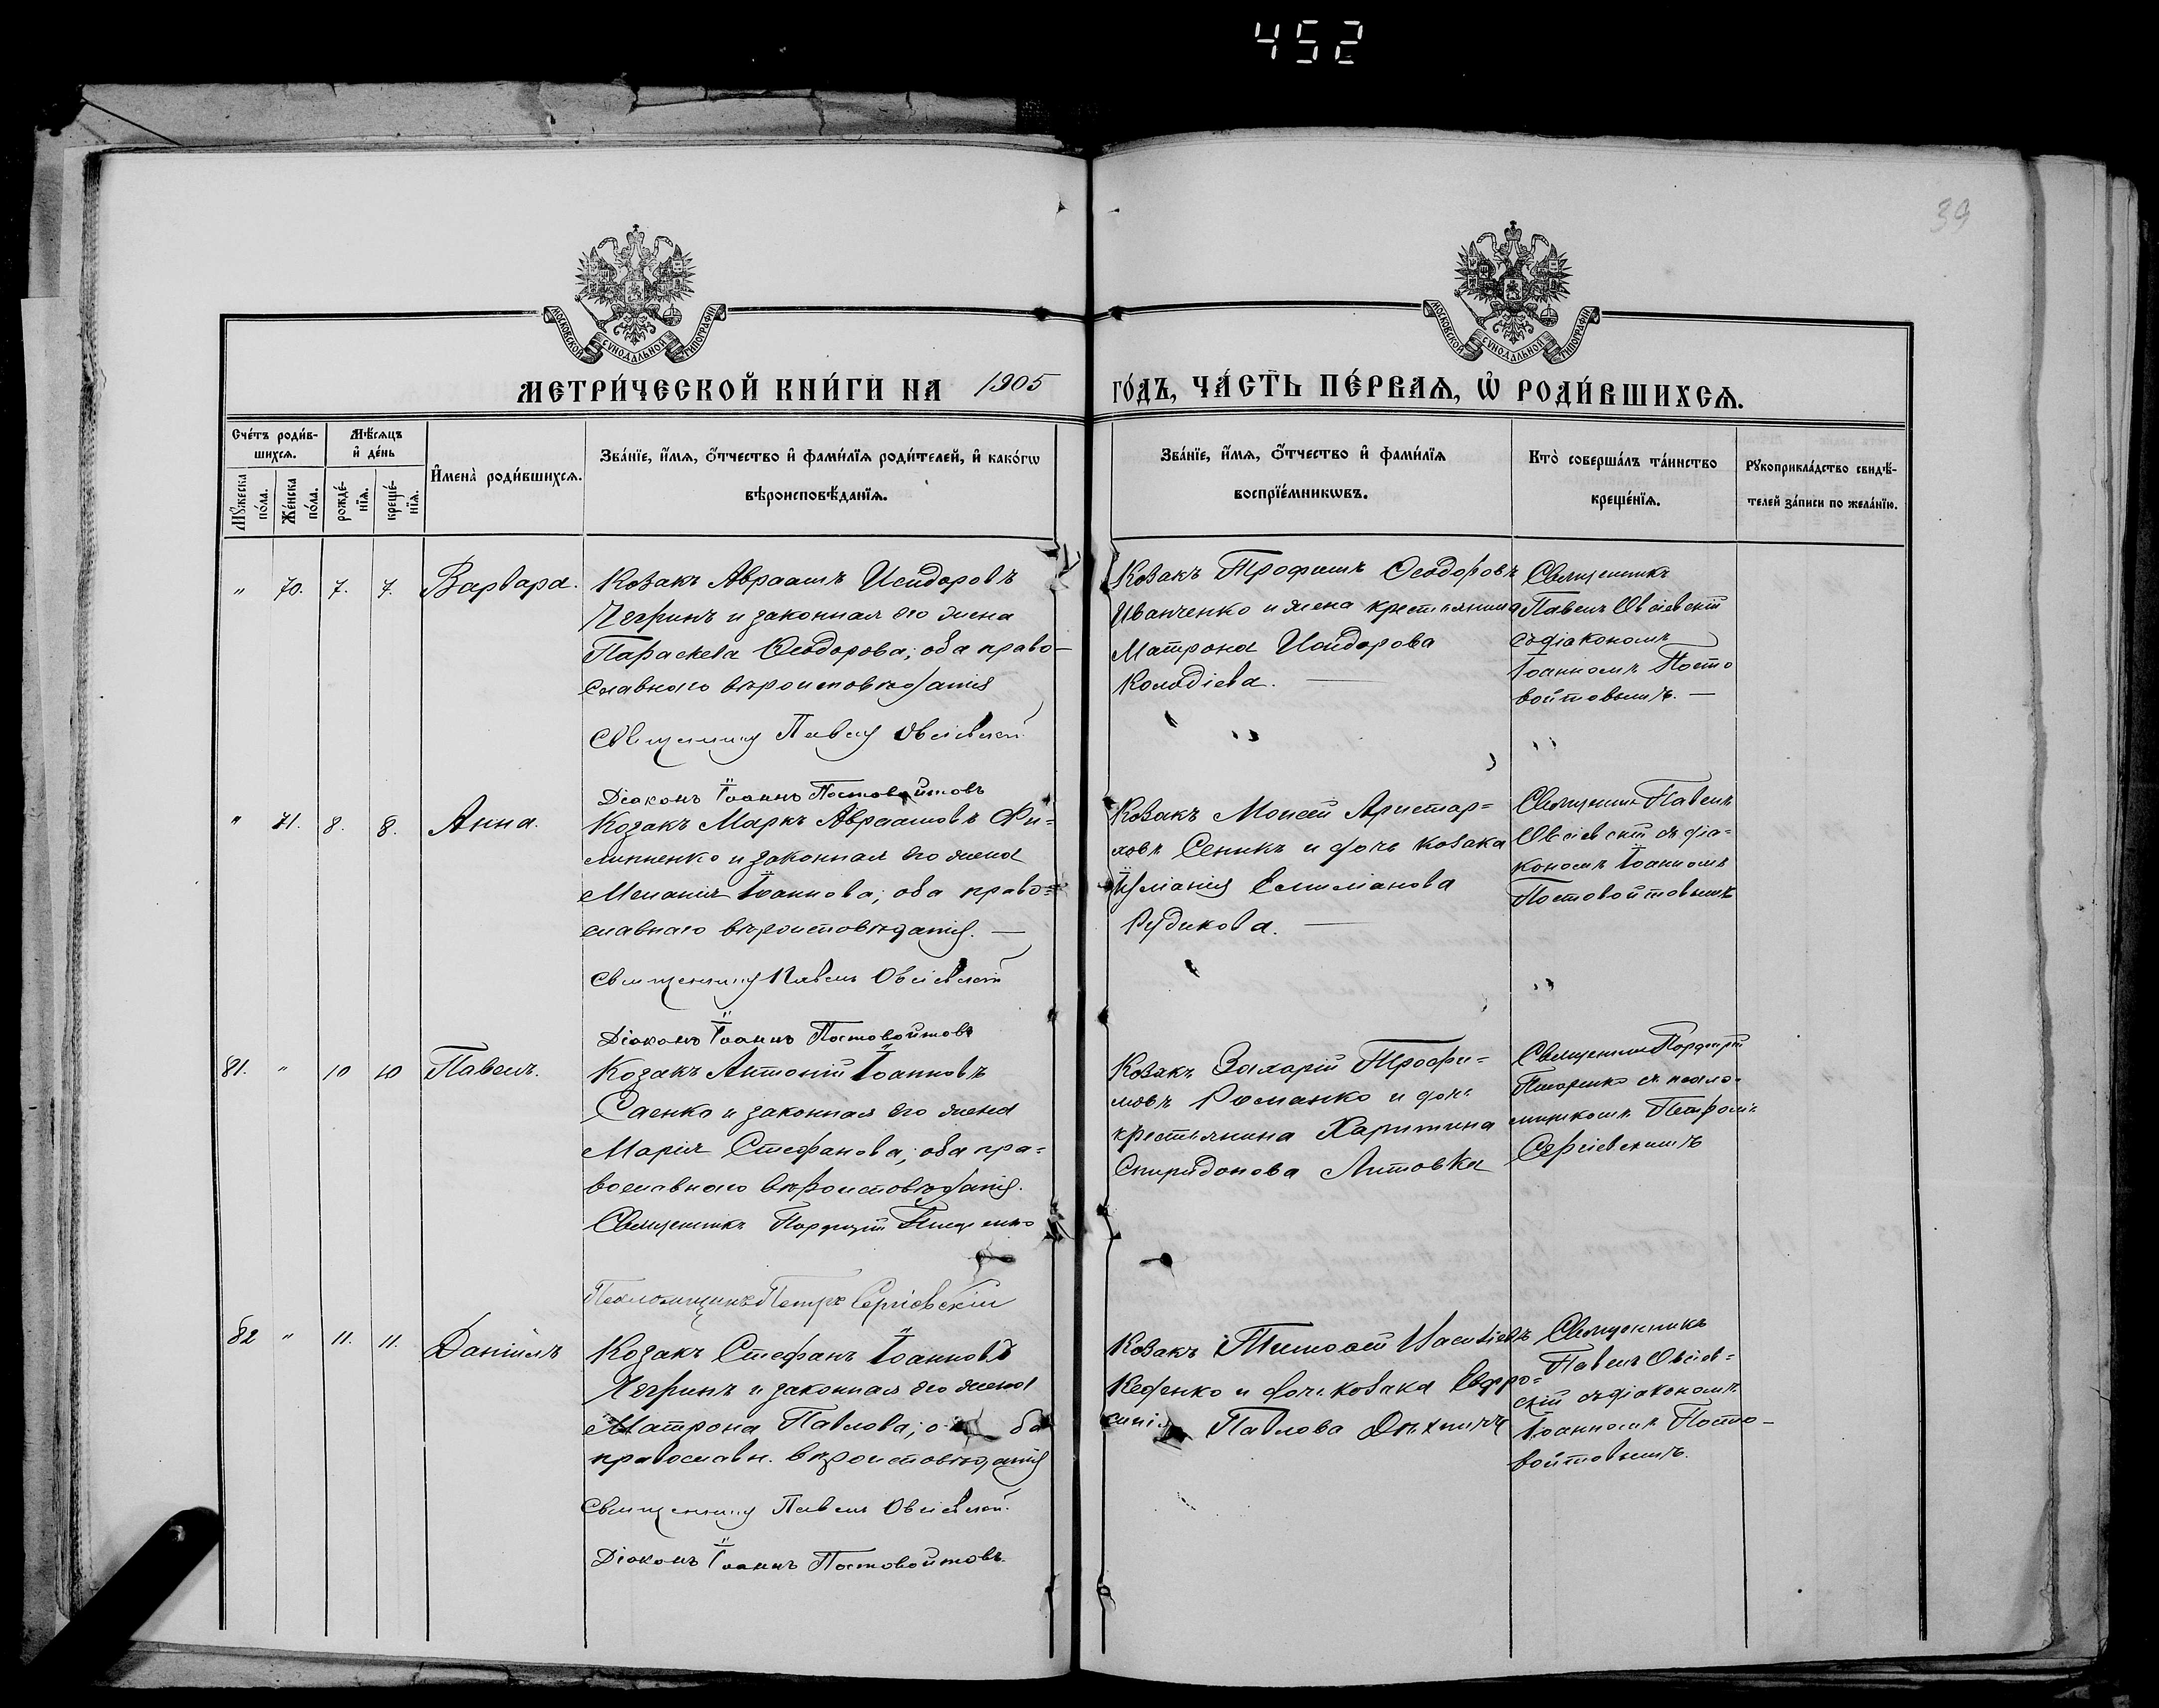 452
39
МОСКОВСКОЙ СѴНОДАЛЬНОЙ ТИПОГРАФІИ
МОСКОВСКОЙ СѴНОДАЛЬНОЙ ТИПОГРАФІИ
МЕТРИ́ЧЕСКОЙ КНИ́ГИ НА 1905 ГО́ДЪ, ЧА́СТЬ ПЕ́РВАѦ, Ѡ҆ РОДИ́ВШИХСѦ.
Сче́тъ роди́в-
шихсѧ.
Мꙋ́жеска по́ла.
Же́нска по́ла.
Мѣ́сѧцъ
и҆ де́нь
рожде́-
нїѧ.
креще́-
нїѧ.
И҆мена̀ роди́вшихсѧ.
Зва́нїе, и҆́мѧ, ѻ҆́тчество и҆ фами́лїѧ роди́телей, и҆ како́гѡ
вѣроисповѣ́данїѧ.
Зва́нїе, и҆́мѧ, ѻ҆́тчество и҆ фами́лїѧ
воспрїе́мникѡвъ.
Кто̀ соверша́лъ та́инство
креще́нїѧ.
Рꙋкоприкла́дство свидѣ́-
телей за́писи по жела́нїю.
" 70. 7. 7. Варвара.
Козакъ Авраамъ Исидоровъ
Чегринъ и законная его жена
Параскева Ѳеодорова; оба право-
славнаго вѣроисповѣданія
Священникъ Павелъ Овсіевскій
Діаконъ Іоаннъ Постовойтовъ
Козакъ Трофимъ Ѳеодоровъ
Иванченко и жена крестьянина
Матрона Исидорова
Колодіева.
Священникъ
Павелъ Овсіевскій
съ діакономъ
Іоанномъ Посто
войтовымъ.
" 71. 8. 8. Анна.
Козакъ Маркъ Авраамовъ Фи-
липпенко и законная его жена
Меланія Іоаннова; оба право-
славнаго вѣроисповѣданія.
Священникъ Павелъ Овсіевскій
Діаконъ Іоаннъ Постовойтовъ
Козакъ Моисей Аристар-
ховъ Сеникъ и дочь козака
Іуліанія Емиліанова
Рудикова.
Священникъ Павелъ
Овсіевскій съ діа-
кономъ Іоанномъ
Постовойтовымъ
81. " 10 10 Павелъ.
Козакъ Антоній Іоанновъ
Саенко и законная его жена
Марія Стефанова; оба пра-
вославнаго вѣроисповѣданія.
Священникъ Порфирій
Псаломщикъ Петръ Сергіевскій
Козакъ Захарій Трофи-
мовъ Романко и дочь
крестьянина Харитина
Спиридонова Литовка
Священникъ Порфирій
съ псало-
мщикомъ Петромъ
Сергіевскимъ
82 " 11. 11. Даніилъ
Козакъ Стефанъ Іоанновъ
Чегринъ и законная его жена
Матрона Павлова; о ба
православн. вѣроисповѣданія
Священникъ Павелъ Овсіевскій.
Діаконъ Іоаннъ Постовойтовъ.
Козакъ Тимоѳей
и дочь козака Евфро-
синія Павлова
Священникъ
Павелъ Овсіев-
скій съ діакономъ
Іоанномъ Посто-
войтовымъ.